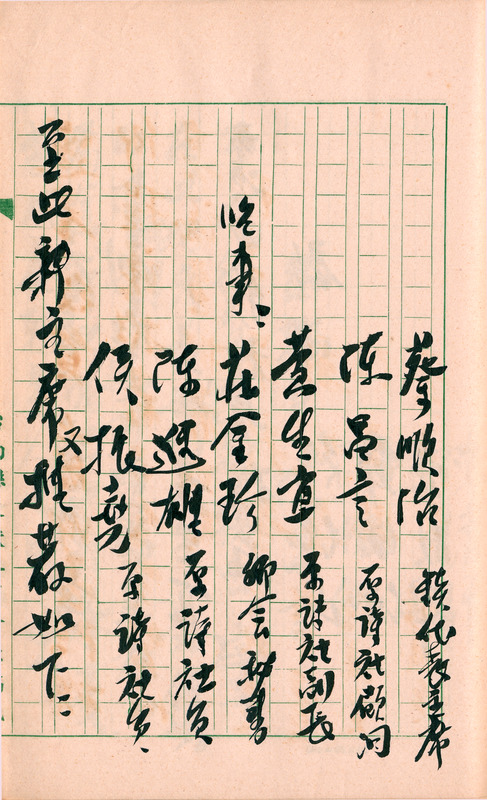 蔡順治 鎮代表主席
陳昌言 原詩社顧問
黃生宜 原詩社副社長
監事：莊金珍 鄉公會秘書
陳進雄 原詩社社員
侯振堯 原詩社社員
至此新主席又推薦如下：